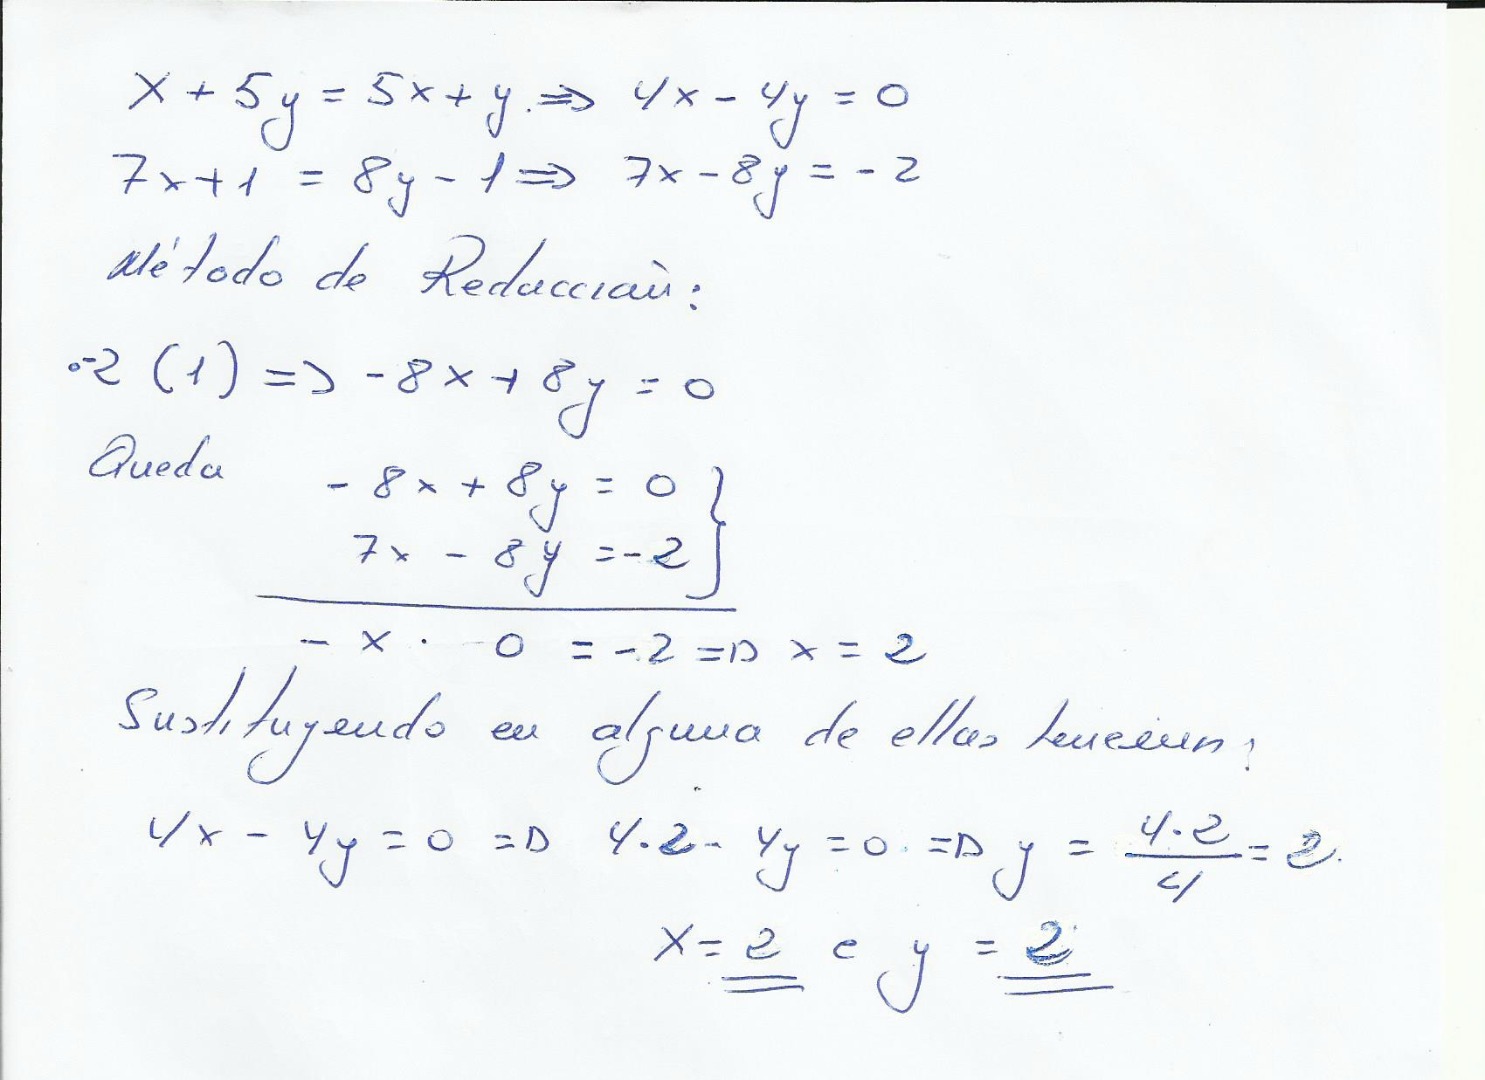 x + 5y = 5x + y. => 4x - 4y = 0
7x + 1 = 8y - 1 => 7x - 8y = -2
Método de Reducción:
·-2 (1) => -8x + 8y = 0
Queda
- 8x + 8y = 0 }
7x - 8y = -2
- x · 0 = -2 => x = 2
Sustituyendo en alguna de ellas tenemos:
4x - 4y = 0 => 4·2 - 4y = 0 => y = 4·2/4 = 2.
x = 2 e y = 2